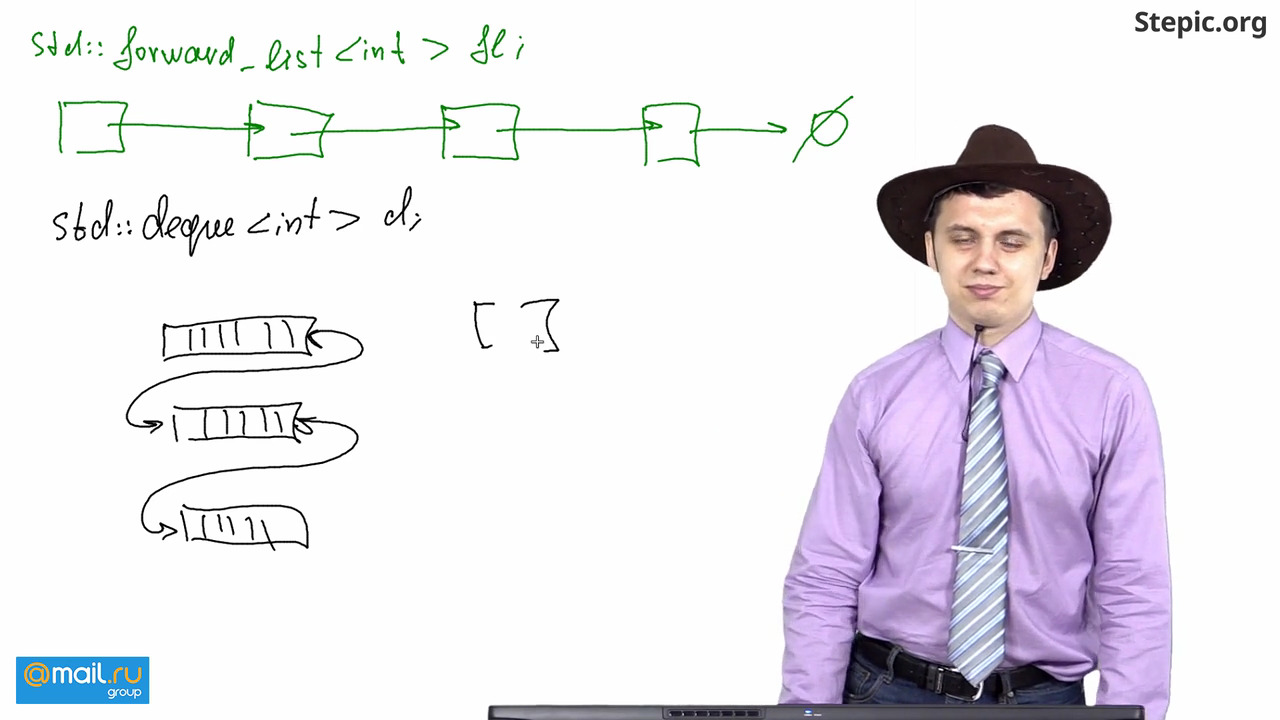 Stepic.org
std::forward_list<int> fl;
∅
std::deque<int> d;
[ ]
@mail.ru
group